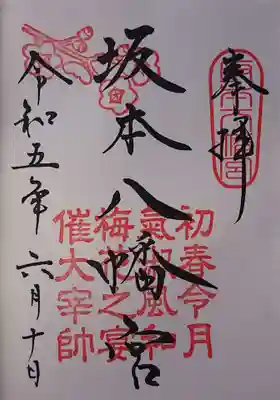 奉拝
坂本八幡宮
初春令月
氣淑風和
梅花之宴
催大宰帥
令和五年六月十日